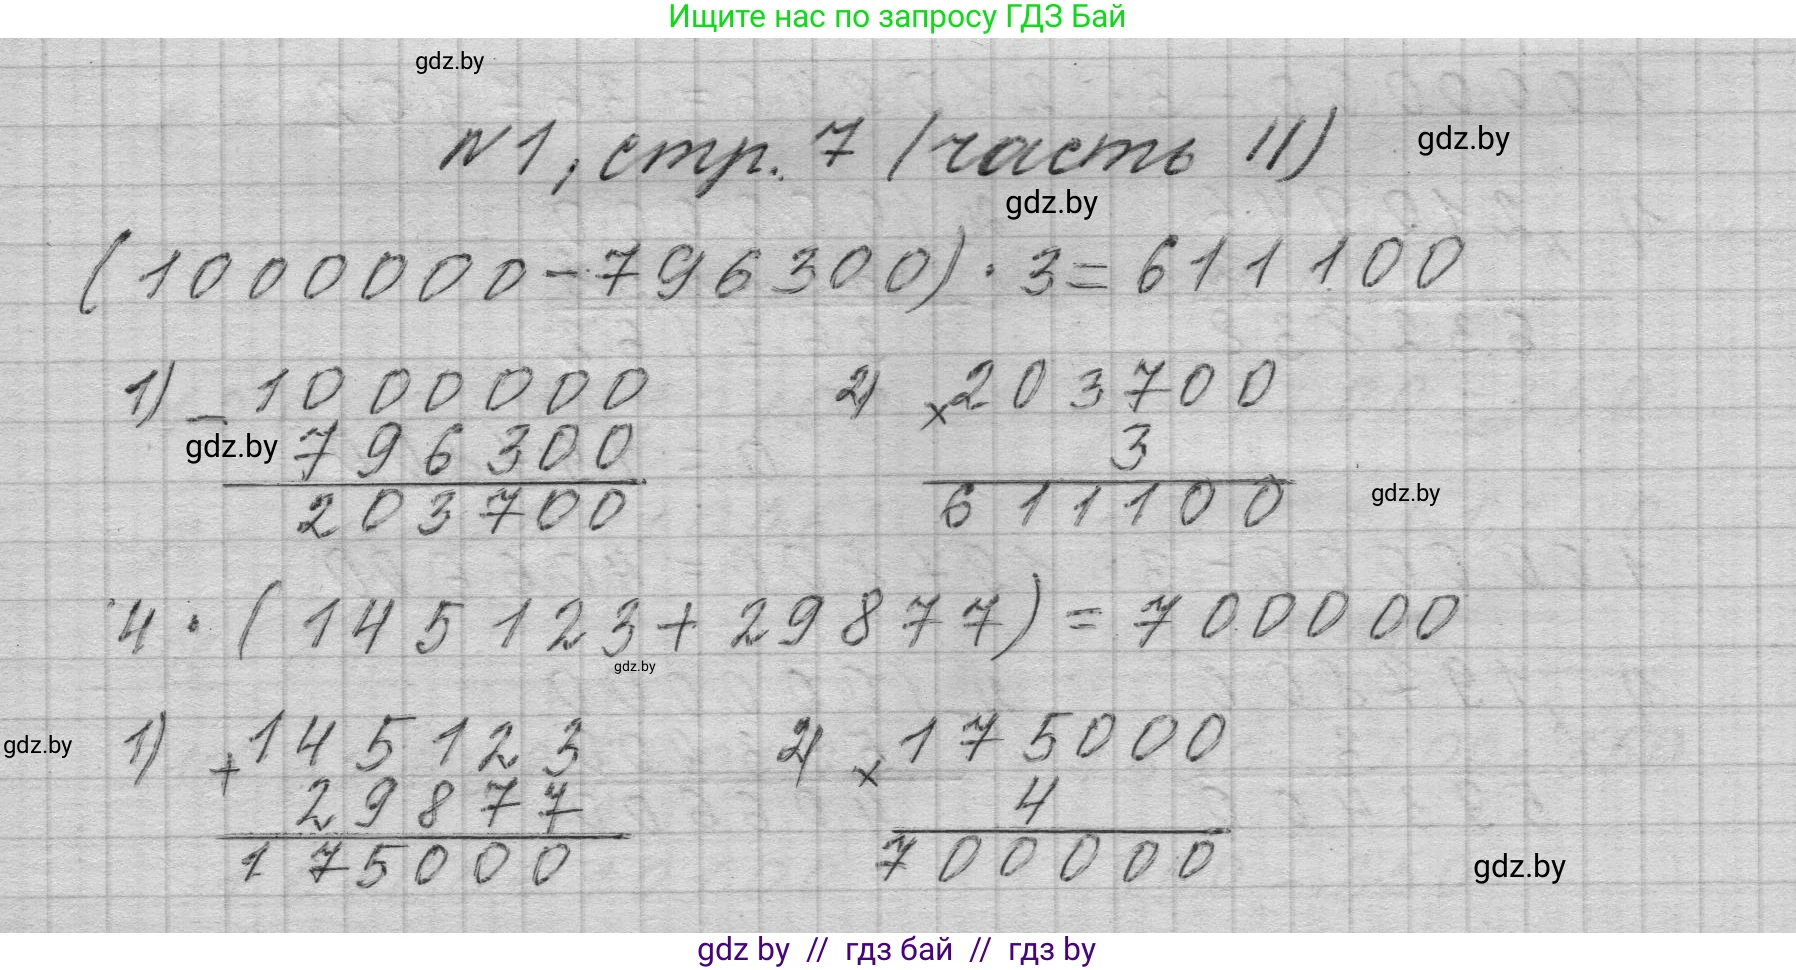 Ищите нас по запросу ГДЗ Бай
gdz.by
№1, стр. 7 (часть II)
gdz.by
gdz.by
(1000000-796300)·3=611100
1) - 1000000
2) x 203700
gdz.by
796300
3
203700
611100
gdz.by
4·(145123+29877)=700000
gdz.by
1) + 145123
2) x 175000
gdz.by
29877
4
175000
700000
gdz.by
gdz by // гдз бай // гдз by